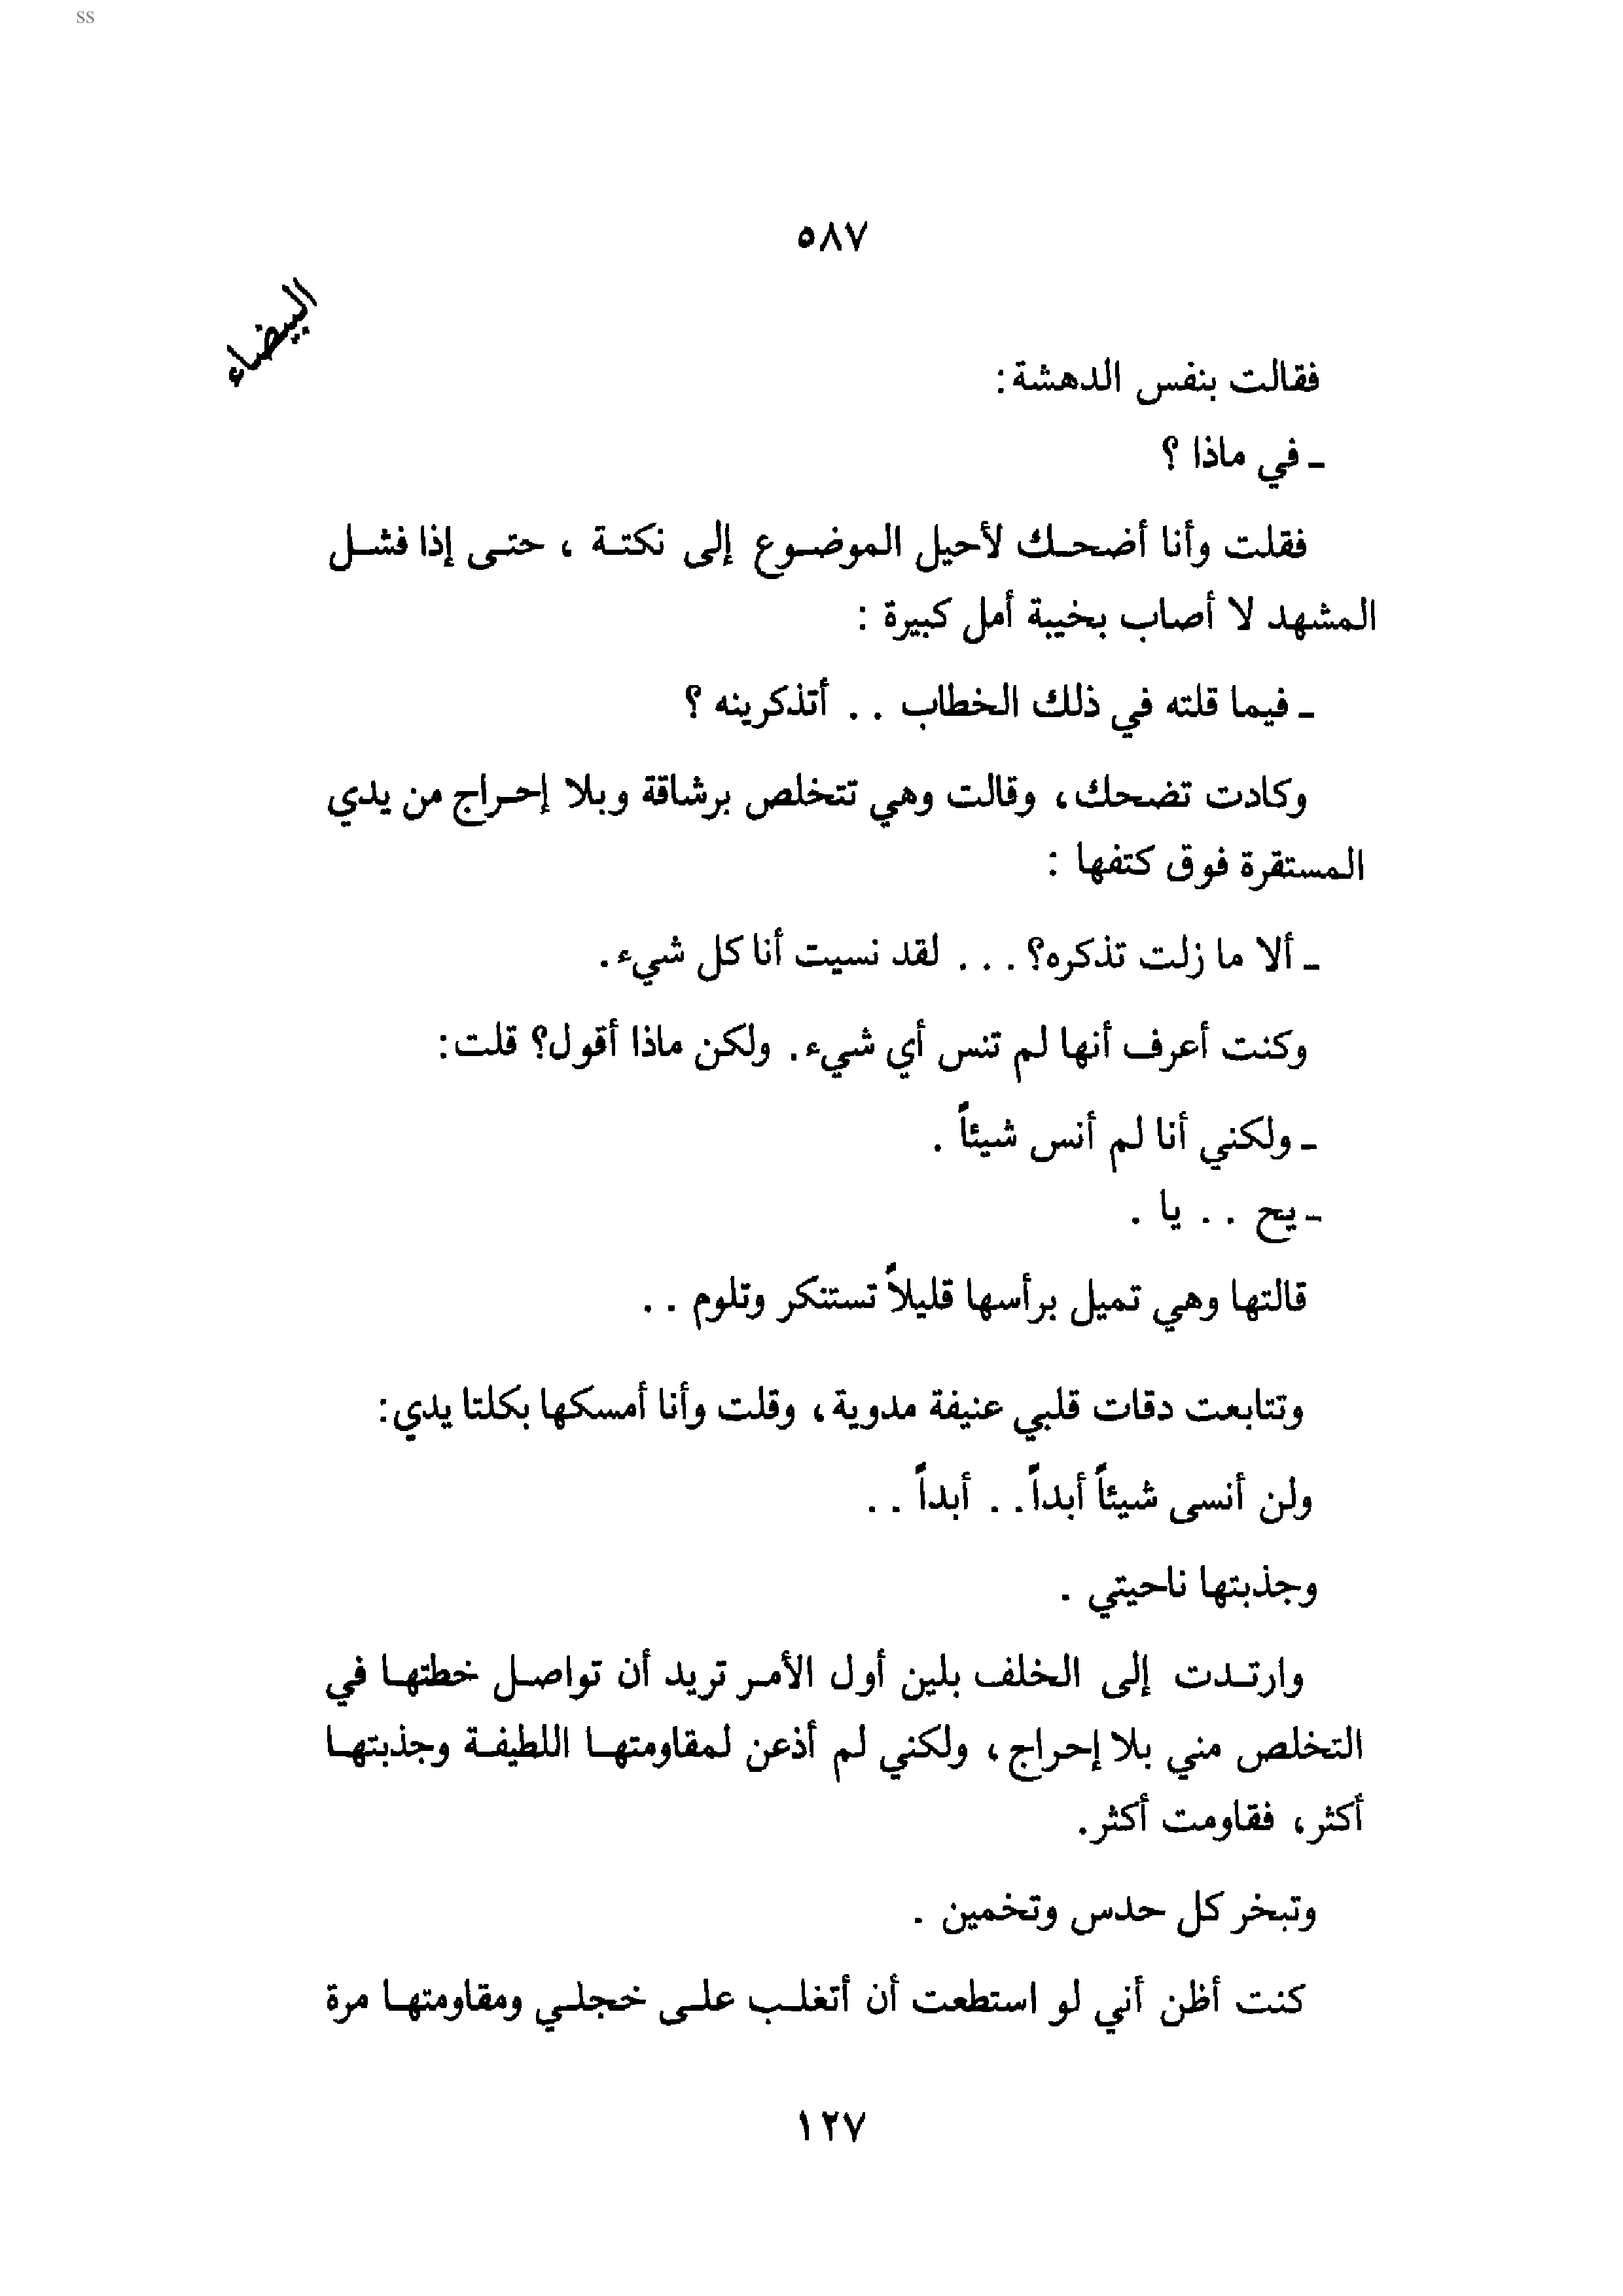 ss
٥٨٧
البيضاء
فقالت بنفس الدهشة:
ـ في ماذا ؟
فقلت وأنا أضحك لأحيل الموضوع إلى نكتة ، حتى إذا فشل
المشهد لا أصاب بخيبة أمل كبيرة :
ـ فيما قلته في ذلك الخطاب . . أتذكرينه ؟
وكادت تضحك، وقالت وهي تتخلص برشاقة وبلا إحراج من يدي
المستقرة فوق كتفها :
ـ ألا ما زلت تذكره؟ . . . لقد نسيت أنا كل شيء.
وكنت أعرف أنها لم تنس أي شيء. ولكن ماذا أقول؟ قلت:
ـ ولكني أنا لم أنس شيئاً .
ـ يح . . يا .
قالتها وهي تميل برأسها قليلاً تستنكر وتلوم . .
وتتابعت دقات قلبي عنيفة مدوية، وقلت وأنا أمسكها بكلتا يدي:
ولن أنسى شيئاً أبداً . . أبداً . .
وجذبتها ناحيتي .
وارتدت إلى الخلف بلين أول الأمر تريد أن تواصل خطتها في
التخلص مني بلا إحراج، ولكني لم أذعن لمقاومتها اللطيفة وجذبتها
أكثر، فقاومت أكثر.
وتبخر كل حدس وتخمين .
كنت أظن أني لو استطعت أن أتغلب على خجلي ومقاومتها مرة
١٢٧